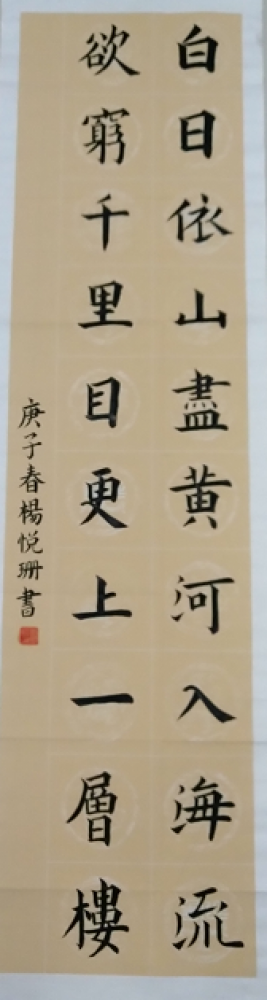 白日依山盡黄河入海流
欲窮千里目更上一層樓
庚子春楊悦珊書